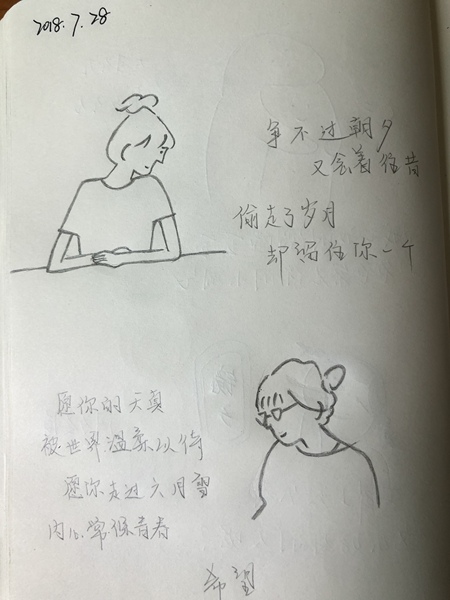 2018.7.28
争不过朝夕
又念着往昔
偷走了岁月
却留住你一个
愿你的天真
被世界温柔以待
愿你走过六月雪
内心常保青春
希望